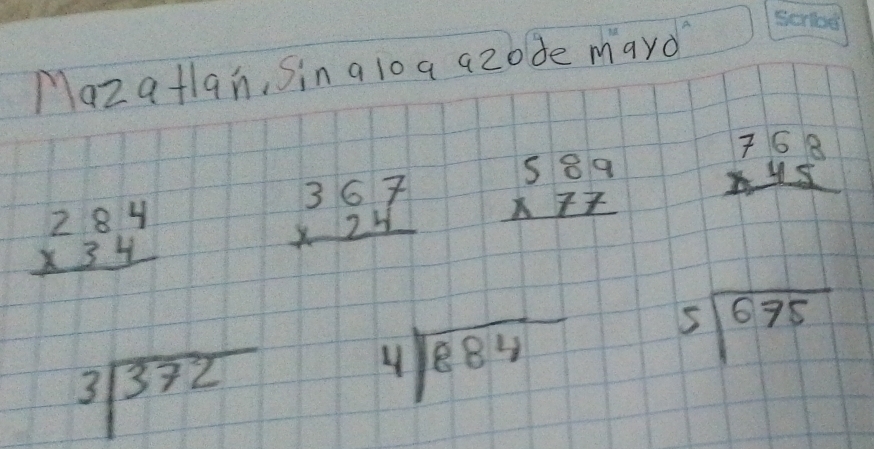 Scribe
Mazatlan, Sinaloa a 20 de mayo
284
x 34
367
x 24
589
x 77
768
x 45
3 372
4 884
5 675